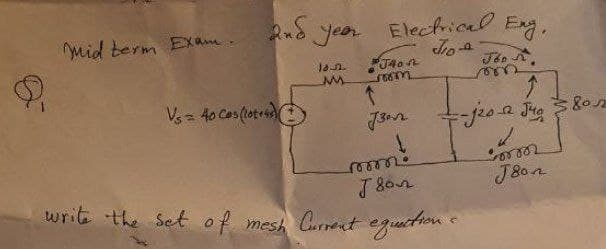 Mid term Exam. 2nd year Electrical Eng.
J10Ω
10Ω J40Ω J60Ω
Q1
Vs = 40 Cos(10t+45) J30Ω -j20Ω J40 80Ω
J80Ω J80Ω
write the set of mesh Current equation